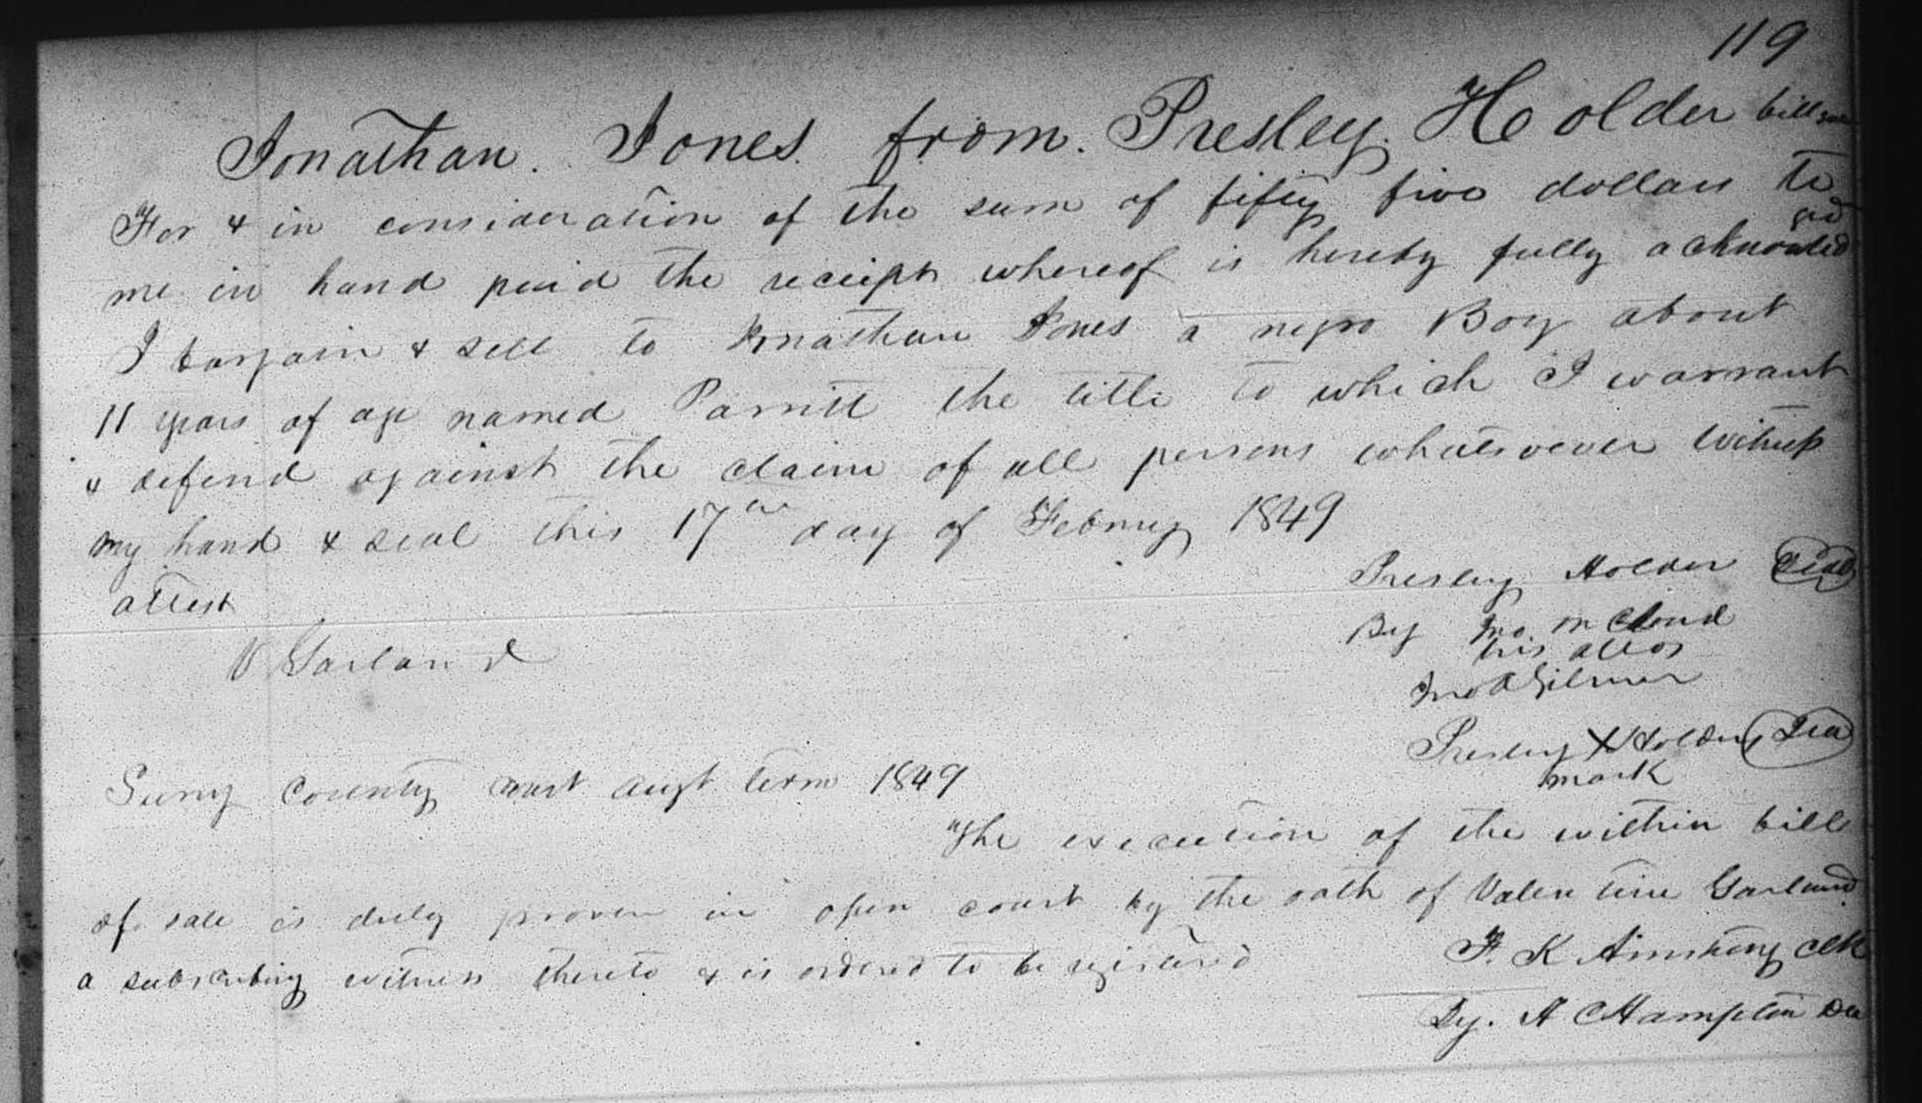 119
Jonathan Jones from Presley Holder bill sale
For & in consideration of the sum of fifty five dollars to
me in hand paid the receipt whereof is hereby fully acknowledged
I bargain & sell to Jonathan Jones a negro Boy about
11 years of age named Parritt the title to which I warrant
& defend against the claim of all persons whatsoever Witness
my hand & seal this 17th day of February 1849
attest
Presley Holder Seal
V Garland
By Jno. McCloud
his attor
Jno A Gilmer
Presley X Holder Sea
mark
Surry County court augt term 1849
The execution of the within bill
of sale is duly proven in open court by the oath of Valentine Garland
a subscribing witness thereto & is ordered to be registered
F. K Armstrong clk
By. A C Hampton